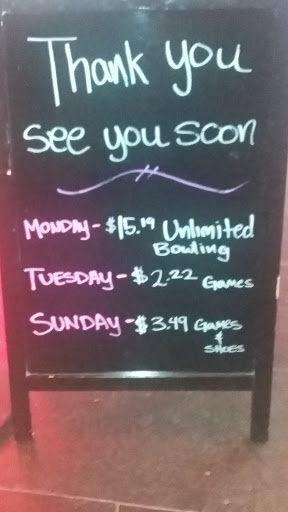 Thank you
see you soon
MONDAY - $15.19 Unlimited
Bowling
TUESDAY - $2.22 Games
SUNDAY - $3.49 Games
&
SHOES